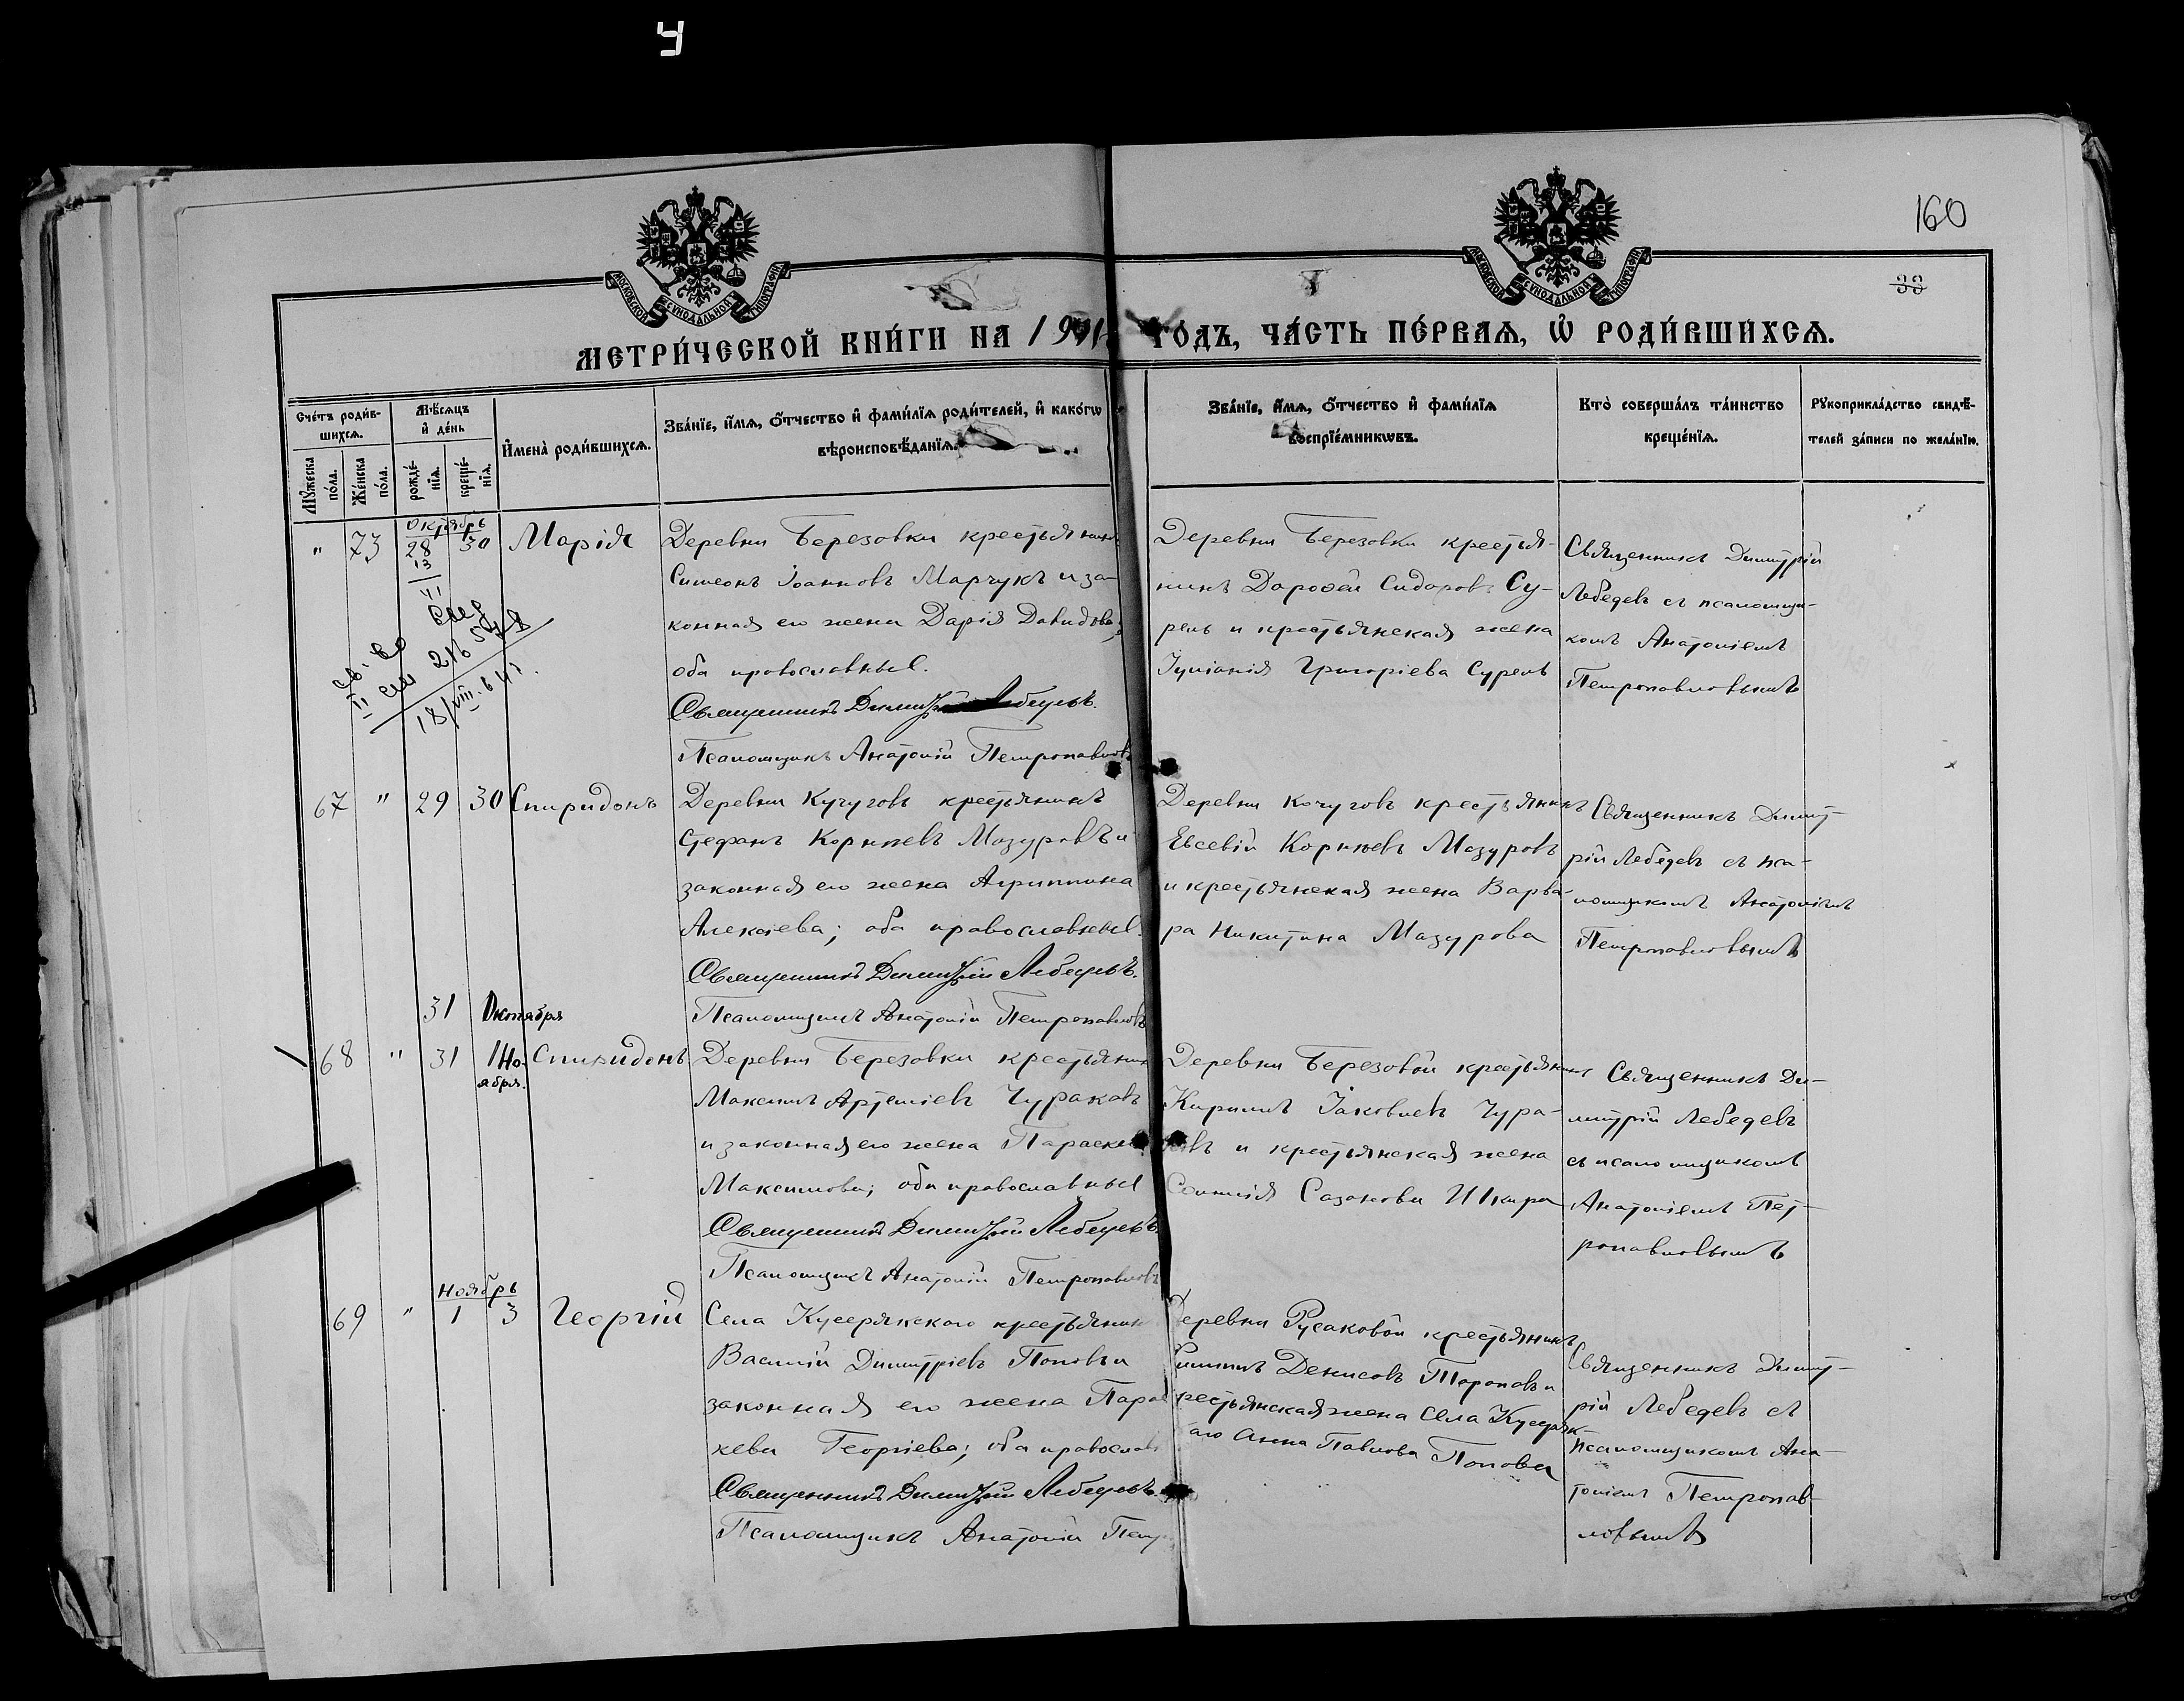 160
33
МОСКОВСКОЙ СѴНОДАЛЬНОЙ ТИПОГРАФІИ
МОСКОВСКОЙ СѴНОДАЛЬНОЙ ТИПОГРАФІИ
МЕТРИ́ЧЕСКОЙ КНИ́ГИ НА 1901 ГО́ДЪ, ЧА́СТЬ ПЕ́РВАѦ, Ѡ҆ РОДИ́ВШИХСѦ.
Сче́тъ роди́в-
шихсѧ.
Мꙋ́жеска по́ла.
Же́нска по́ла.
Мѣ́сѧцъ
и҆ де́нь
рожде́-
нїѧ.
креще́-
нїѧ.
И҆мена̀ роди́вшихсѧ.
Зва́нїе, и҆́мѧ, ѻ҆́тчество и҆ фами́лїѧ роди́телей, и҆ како́гѡ
вѣроисповѣ́данїѧ.
Зва́нїе, и҆́мѧ, ѻ҆́тчество и҆ фами́лїѧ
воспрїе́мникѡвъ.
Кто̀ соверша́лъ та́инство
креще́нїѧ.
Рꙋкоприкла́дство свидѣ́-
телей за́писи по жела́нїю.
Октябрь
" 73 28 30 Марія
13
VI
18/VIII. 641.
Деревни Березовки крестьянинъ
Симеонъ Іоанновъ Марчукъ и за-
конная его жена Дарія Давидова,
оба православные.
Священникъ Димитрій Лебедевъ.
Псаломщикъ Анатолій Петропавловъ
Деревни Березовки крестья-
нинъ Дороѳей Сидоровъ Су-
рель и крестьянская жена
Іуліанія Григоріева Сурель
Священникъ Димитрій
Лебедевъ съ псаломщи-
комъ Анатоліемъ
Петропавловымъ
67 " 29 30 Спиридонъ
Деревни Кучуговъ крестьянинъ
Стефанъ Корнѣевъ Мазуровъ и
законная его жена Агриппина
Алексіева; оба православные.
Священникъ Димитрій Лебедевъ.
Псаломщикъ Анатолій Петропавловъ
Деревни Кочуговъ крестьянинъ
Евсевій Корнѣевъ Мазуровъ
и крестьянская жена Варва-
ра Никитина Мазурова
Священникъ Димит-
рій Лебедевъ съ пса-
ломщикомъ Анатоліемъ
Петропавловымъ
31 Октября
68 " 31 1 Но-
ября.
Спиридонъ
Деревни Березовки крестьянинъ
Максимъ Артеміевъ Чураковъ
и законная его жена Параскева
Максимова; оба православные
Священникъ Димитрій Лебедевъ.
Псаломщикъ Анатолій Петропавловъ
Деревни Березовой крестьянинъ
Кириллъ Іаковлевъ Чура-
ковъ и крестьянская жена
Сазонова Шкира
Священникъ Ди-
митрій Лебедевъ
съ псаломщикомъ
Анатоліемъ Пет-
ропавловымъ
Ноябрь
69 " 1 3 Георгій
Села Кусерякского крестьянинъ
Василій Димитріевъ Поповъ и
законная его жена Парас
кева Георгіева; оба православ
Священникъ Димитрій Лебедевъ.
Псаломщикъ Анатолій Петр
Деревни Русаковой крестьянинъ
Филиппъ Денисовъ Тороповъ и
крестьянская жена села Кусеряк-
аго Анна Павлова Попова
Священникъ Димит-
рій Лебедевъ съ
псаломщикомъ Ана-
толіемъ Петропав-
ловымъ